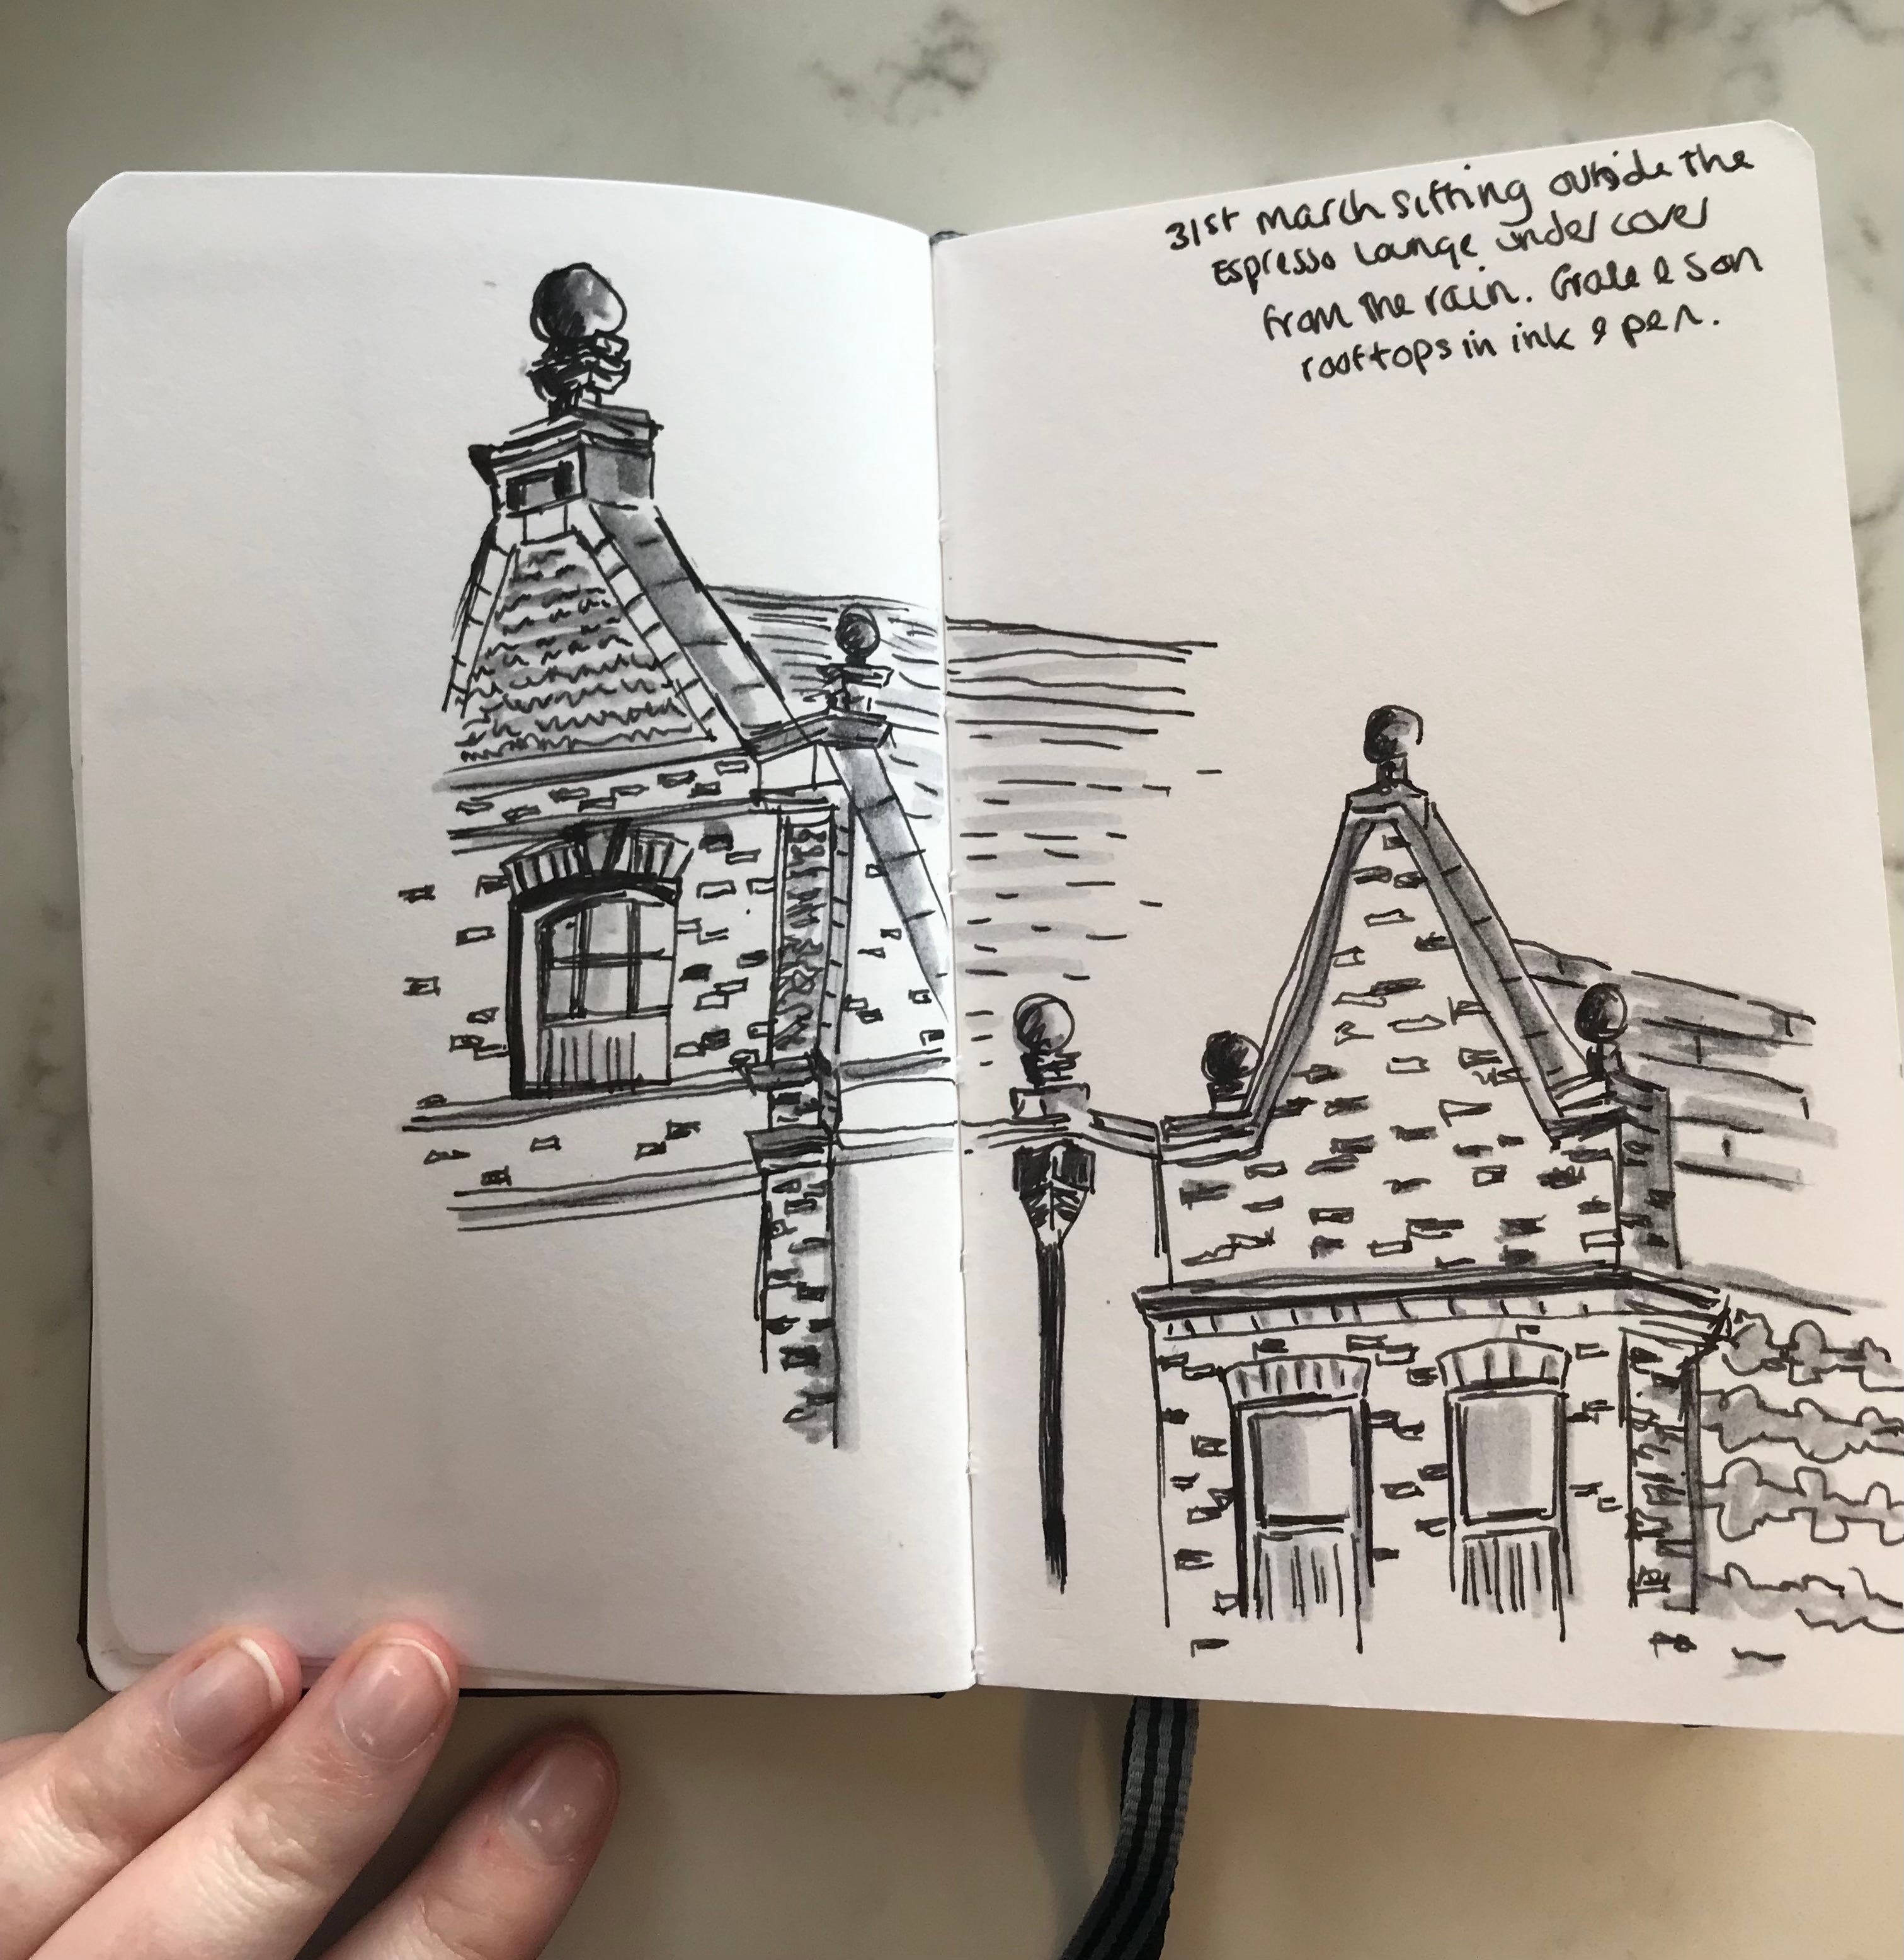 31st march sitting outside the
Espresso Lounge under cover
from the rain. Grale & Son
rooftops in ink & pen.